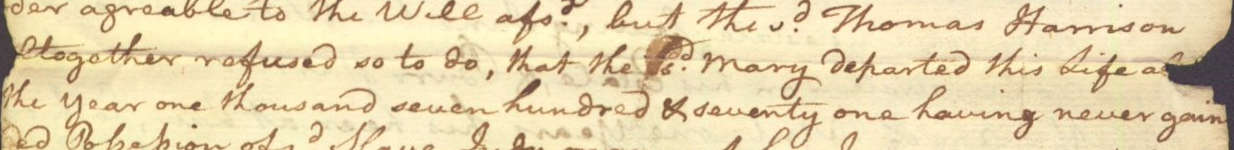 der agreable to the Will afsd., but the sd. Thomas Harrison
ltogether refused so to do, that the sd. Mary departed this Life ab
the year one thousand seven hundred & seventy one having never gain
ed Possession of sd Slave Judy